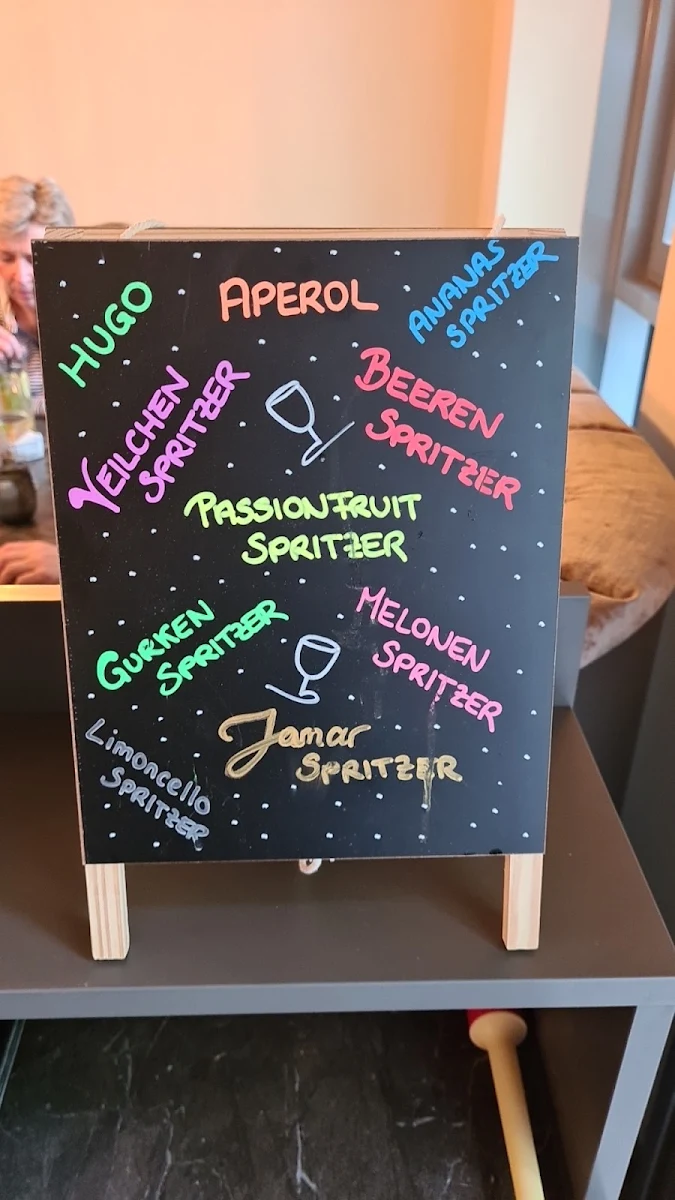 HUGO
APEROL
ANANAS
SPRITZER
VEILCHEN
SPRITZER
BEEREN
SPRITZER
PASSIONFRUIT
SPRITZER
GURKEN
SPRITZER
MELONEN
SPRITZER
Jamar
SPRITZER
Limoncello
SPRITZER